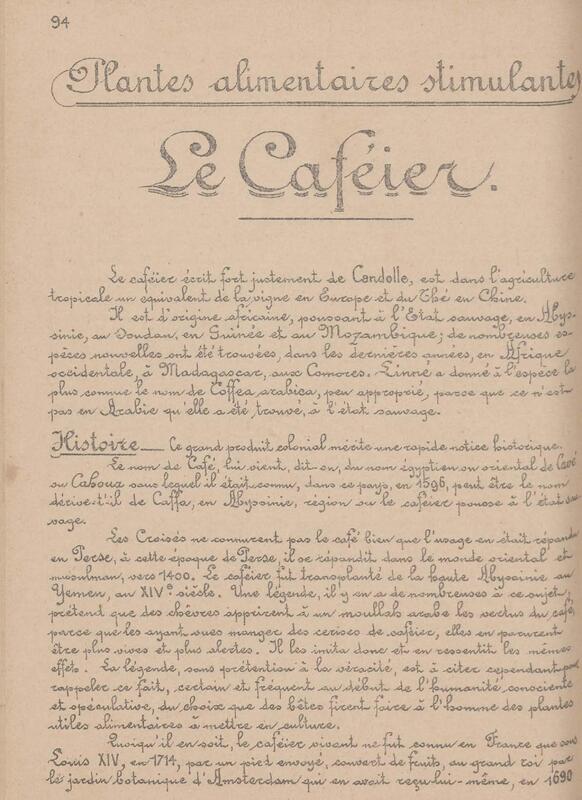 94
Plantes alimentaires stimulantes
Le Caféier.
Le caféier écrit fort justement de Candolle, est dans l'agriculture
tropicale un équivalent de la vigne en Europe et du Thé en Chine.
Il est d'origine africaine, poussant à l'Etat sauvage, en Abys-
sinie, au Soudan, en Guinée et au Mozambique; de nombreuses es-
pèces nouvelles ont été trouvées, dans les dernières années, en Afrique
occidentale, à Madagascar, aux Comores. Linné a donné à l'espèce la
plus connue le nom de Coffea arabica, peu approprié, parce que ce n'est
pas en Arabie qu'elle a été trouvé, à l'état sauvage.
Histoire — Ce grand produit colonial mérite une rapide notice historique.
Le nom de Café, lui vient, dit-on, du nom égyptien ou oriental de Cavé
ou Cahoua sous lequel il était connu, dans ce pays, en 1596, peut être le nom
dérive-t'il de Caffa, en Abyssinie, région ou le caféier pousse à l'état sau-
vage.
Les Croisés ne connurent pas le café bien que l'usage en était répandu
en Perse, à cette époque de Perse, il se répandit dans le monde oriental et
musulman, vers 1400. Le caféier fut transplanté de la haute Abyssinie au
Yemen, au XIVe siècle. Une légende, il y en a de nombreuses à ce sujet,
prétend que des chèvres apprirent à un moullah arabe les vertus du café,
parce que les ayant vues manger des cerises de caféier, elles en parurent
être plus vives et plus alertes. Il les imita donc et en ressentit les mêmes
effets. La légende, sans prétention à la véracité, est à citer cependant pour
rappeler ce fait, certain et fréquent au début de l'humanité consciente
et spéculative, du choix que des bêtes firent faire à l'homme des plantes
utiles alimentaires à mettre en culture.
Quoiqu'il en soit, le caféier vivant ne fut connu en France que sous
Louis XIV, en 1714, par un pied envoyé, couvert de fruits, au grand roi par
le jardin botanique d'Amsterdam qui en avait reçu lui-même, en 1690